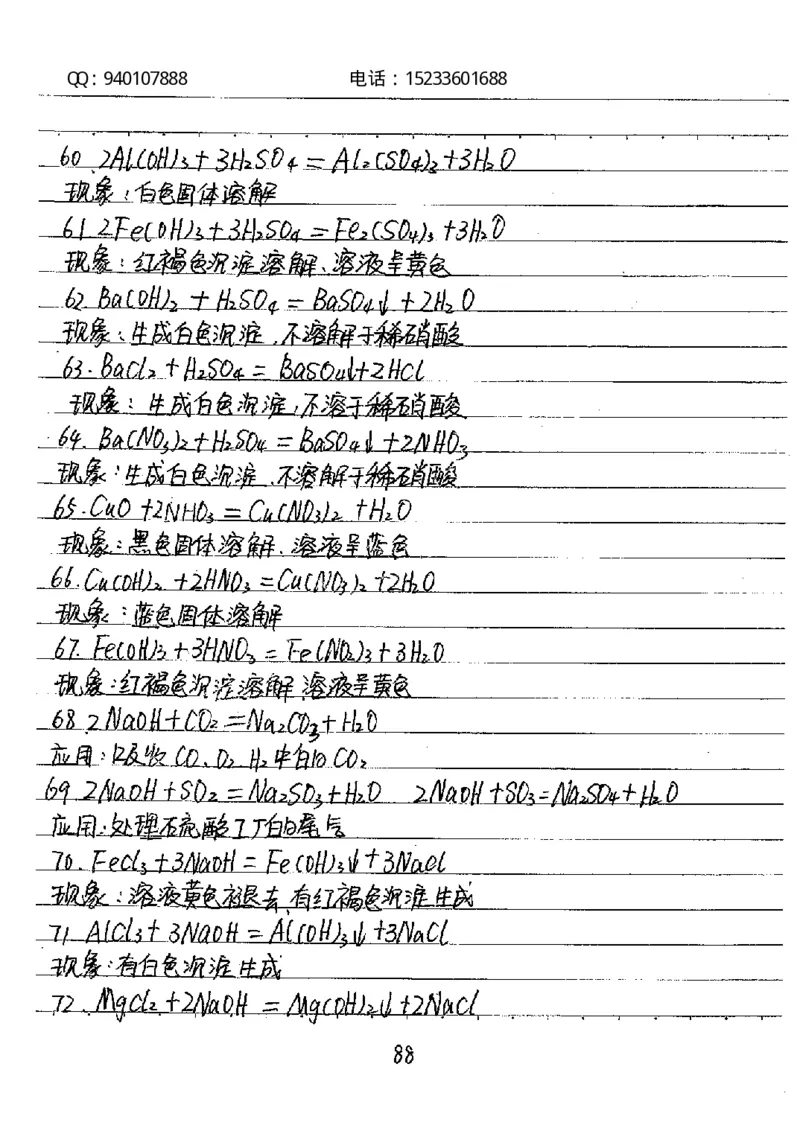 QQ：940107888 电话：15233601688
60.2Al(OH)₃+3H₂SO₄=Al₂(SO₄)₃+3H₂O
现象：白色固体溶解
61.2Fe(OH)₃+3H₂SO₄=Fe₂(SO₄)₃+3H₂O
现象：红褐色沉淀溶解、溶液呈黄色
62.Ba(OH)₂+H₂SO₄=BaSO₄↓+2H₂O
现象：生成白色沉淀，不溶解于稀硝酸
63.BaCl₂+H₂SO₄=BaSO₄↓+2HCl
现象：生成白色沉淀，不溶于稀硝酸
64.Ba(NO₃)₂+H₂SO₄=BaSO₄↓+2NHO₃
现象：生成白色沉淀，不溶解于稀硝酸
65.CuO+2NHO₃=Cu(NO₃)₂+H₂O
现象：黑色固体溶解、溶液呈蓝色
66.Cu(OH)₂+2HNO₃=Cu(NO₃)₂+2H₂O
现象：蓝色固体溶解
67.Fe(OH)₃+3HNO₃=Fe(NO₂)₃+3H₂O
现象：红褐色沉淀溶解、溶液呈黄色
68.2NaOH+CO₂=Na₂CO₃+H₂O
应用：吸收CO、O₂、H₂中的CO₂
69.2NaOH+SO₂=Na₂SO₃+H₂O 2NaOH+SO₃=Na₂SO₄+H₂O
应用：处理硫酸工厂的尾气
70.FeCl₃+3NaOH=Fe(OH)₃↓+3NaCl
现象：溶液黄色褪去，有红褐色沉淀生成
71.AlCl₃+3NaOH=Al(OH)₃↓+3NaCl
现象：有白色沉淀生成
72.MgCl₂+2NaOH=Mg(OH)₂↓+2NaCl
88